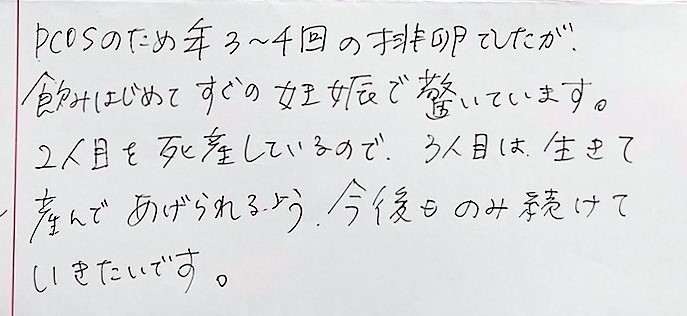 PCOSのため年3~4回の排卵でしたが、
飲みはじめてすぐの妊娠で驚いています。
2人目を死産しているので、3人目は、生きて
産んであげられるよう、今後ものみ続けて
いきたいです。